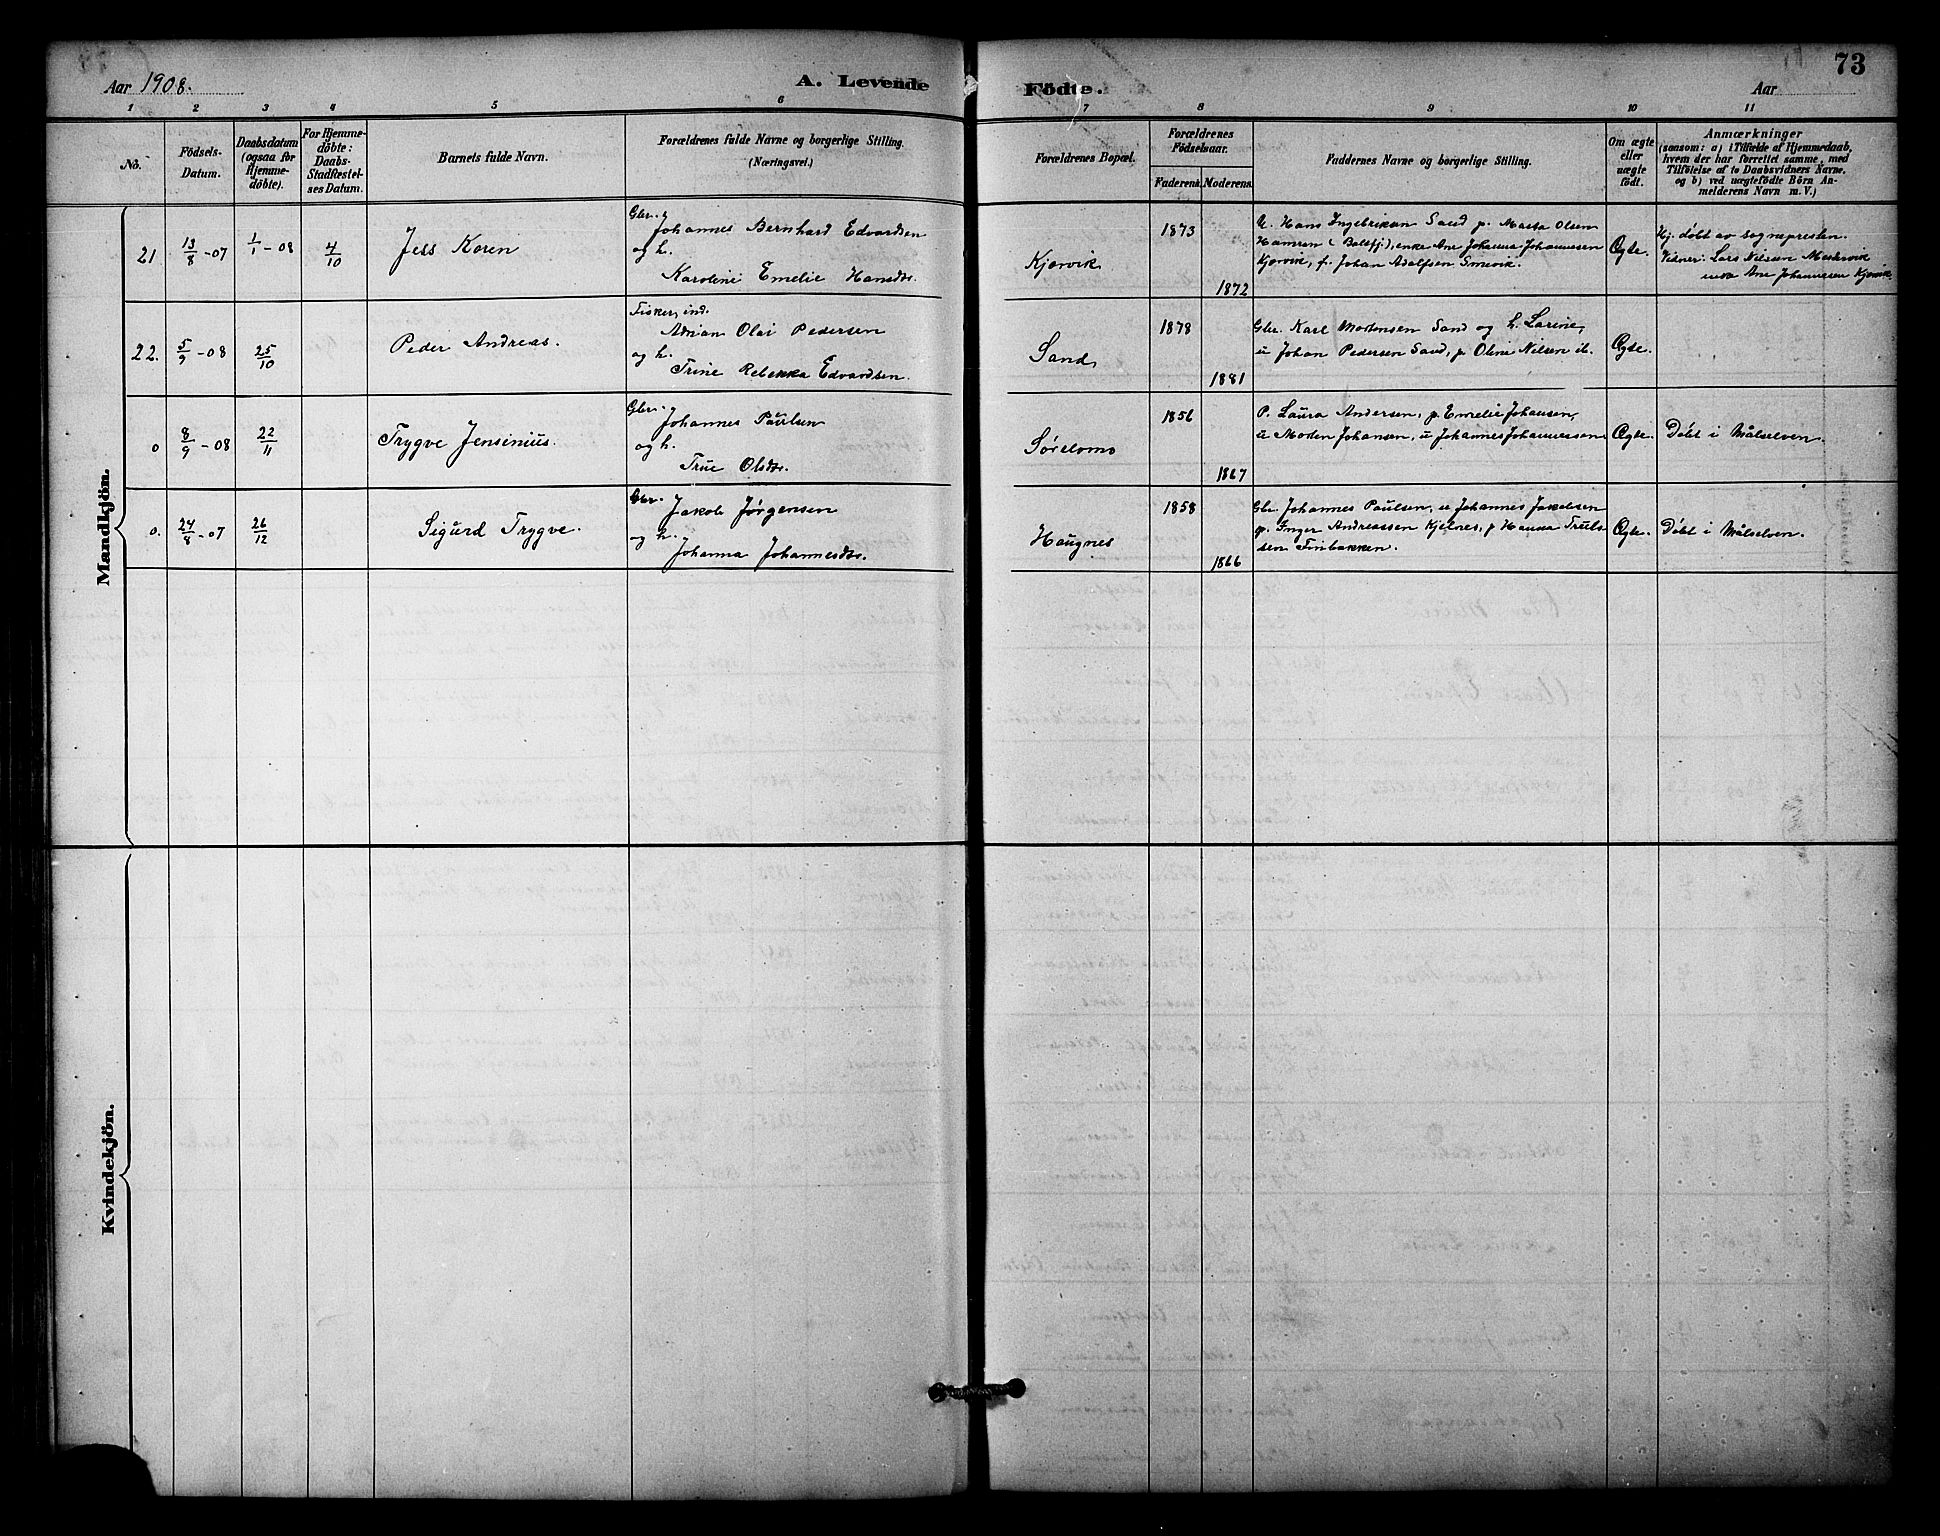 73
Aar 1908.
A. Levende
Födte.
Aar
1 2 3 4 5 6 7 8 9 10 11
No.
Födsels-
Datum.
Daabsdatum
(ogsaa for
Hjemme-
döbte).
For Hjemme-
döbte:
Daabs-
Stadfæstel-
ses Datum.
Barnets fulde Navn.
Forældrenes fulde Navne og borgerlige Stilling.
(Næringsvei.)
Forældrenes Bopæl.
Forældrenes
Födselsaar.
Faderens. Moderens.
Faddernes Navne og borgerlige Stilling.
Om ægte
eller
uægte
födt.
Anmærkninger
(saasom: a) i Tilfælde af Hjemmedaab,
hvem der har forrettet samme, med
Tilföielse af to Daabsvidners Navne.
og b) ved uægtefödte Börn An-
melderens Navn m. V.)
Mandkjön.
21 13/8 - 07 1/1 - 08 4/10 Jess Koren
Gbr. Johannes Bernhard Edvardsen
og h.
Karoline Emelie Hansdtr.
Kjørvik
1873
1872
U. Hans Ingebriksen Sand p. Massa Olsen
Hamren (Balsfj), enke Ane Johanna Johannessen
Kjørvik, f. Johan Adolfsen Smevik.
Ægte.
Hj. døbt av sognepresten.
Vidner: Lars Nilsen Mestervik
Ane Johannessen Kjørvik
22. 5/9 - 08 25/10 Peder Andreas.
Fisker, ind.
Adrian Olai Pedersen
og h.
Trine Rebekka Edvardsen.
Sand
1878
1881
Gbr. Karl Mortensen Sand og h. Larine,
u Johan Pedersen Sand, p Oline Nilsen ib.
Ægte.
0 8/9 - 08 22/11 Trygve Jensenius.
Gbr. Johannes Paulsen
og h.
Trine Olsdtr.
Sørelomo
1856
1867
P. Laura Andersen, p. Emelie Johansen,
u Morten Johansen, u Johannes Johannessen
Ægte.
Døbt i Målselven.
0. 24/8 - 07 26/12 Sigurd Trygve.
Gbr. Jakob Jørgensen
og h.
Johanna Johannesdtr.
Haugnes
1858
1866
Gbr Johannes Paulsen, u Johannes Jakobsen
p. Inger Andreassen Kjelnes, p Hanna Truls-
sen Finbakken.
Ægte.
Døbt i Målselven.
Kvindekjön.